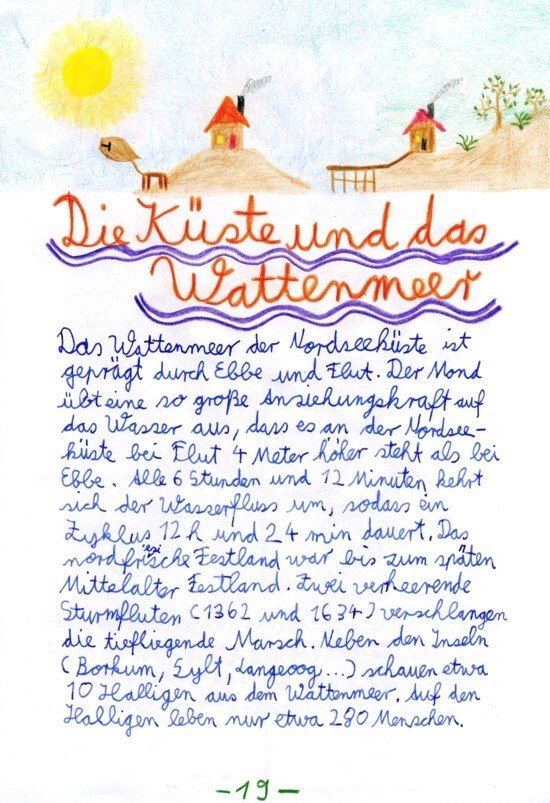 Die Küste und das
Wattenmeer
Das Wattenmeer der Nordseeküste ist
geprägt durch Ebbe und Flut. Der Mond
übt eine so große Anziehungskraft auf
das Wasser aus, dass es an der Nordsee-
küste bei Flut 4 Meter höher steht als bei
Ebbe. Alle 6 Stunden und 12 Minuten kehrt
sich der Wasserfluss um, sodass ein
Zyklus 12 h und 24 min dauert. Das
nordfriesische Festland war bis zum späten
Mittelalter Festland. Zwei verheerende
Sturmfluten (1362 und 1634) verschlangen
die tiefliegende Marsch. Neben den Inseln
(Borkum, Sylt, Langeoog...) schauen etwa
10 Halligen aus dem Wattenmeer. Auf den
Halligen leben nur etwa 280 Menschen.
- 19 -